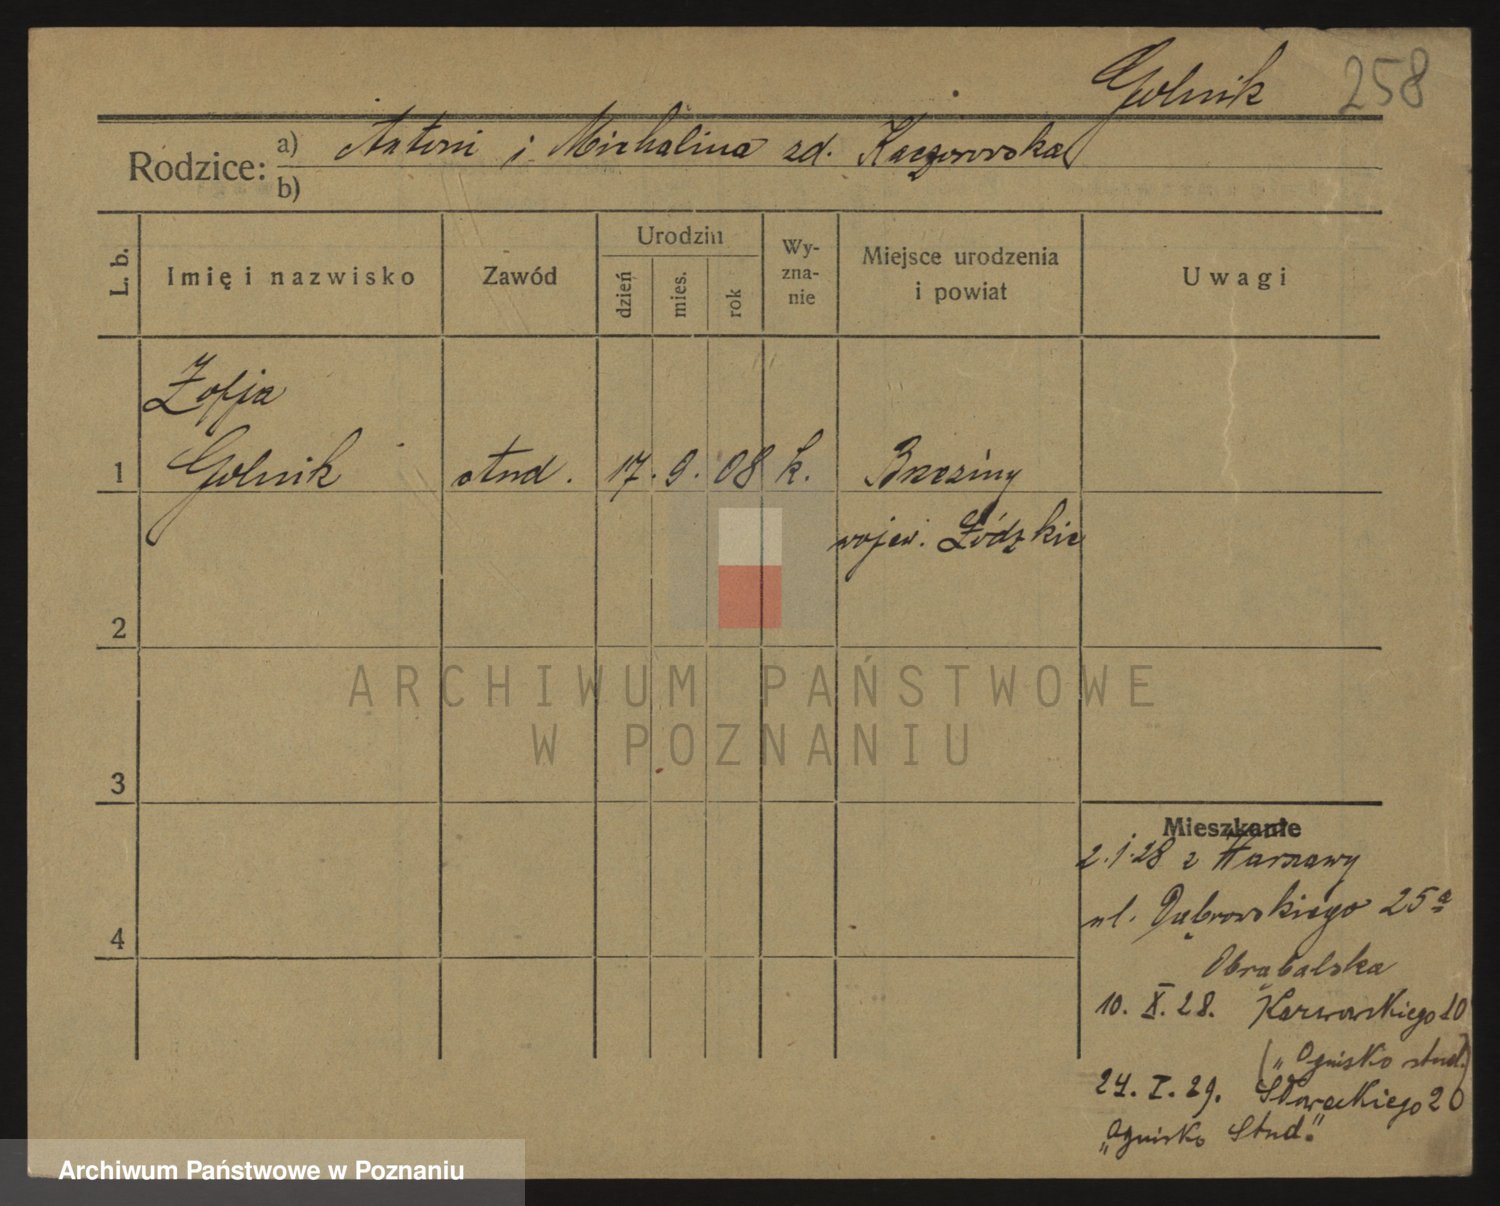 Golnik 258
Rodzice: a) Antoni i Michalina zd. Kaczorowska
b)
L. b. Imię i nazwisko Zawód Urodzin dzień mies. rok Wy-zna-nie Miejsce urodzenia i powiat Uwagi
Zofja
1 Golnik stud. 17. 9. 08 k. Brzeziny
wojew. Łódzkie
2
ARCHIWUM PAŃSTWOWE
W POZNANIU
3
Mieszkanie
2.1.28 z Warszawy
ul. Dąbrowskiego 25a
4
Obrąbalska
10. X. 28. Karwowskiego 10
("Ognisko stud.)
24. I. 29. Słowackiego 20
„Ognisko Stud."
Archiwum Państwowe w Poznaniu